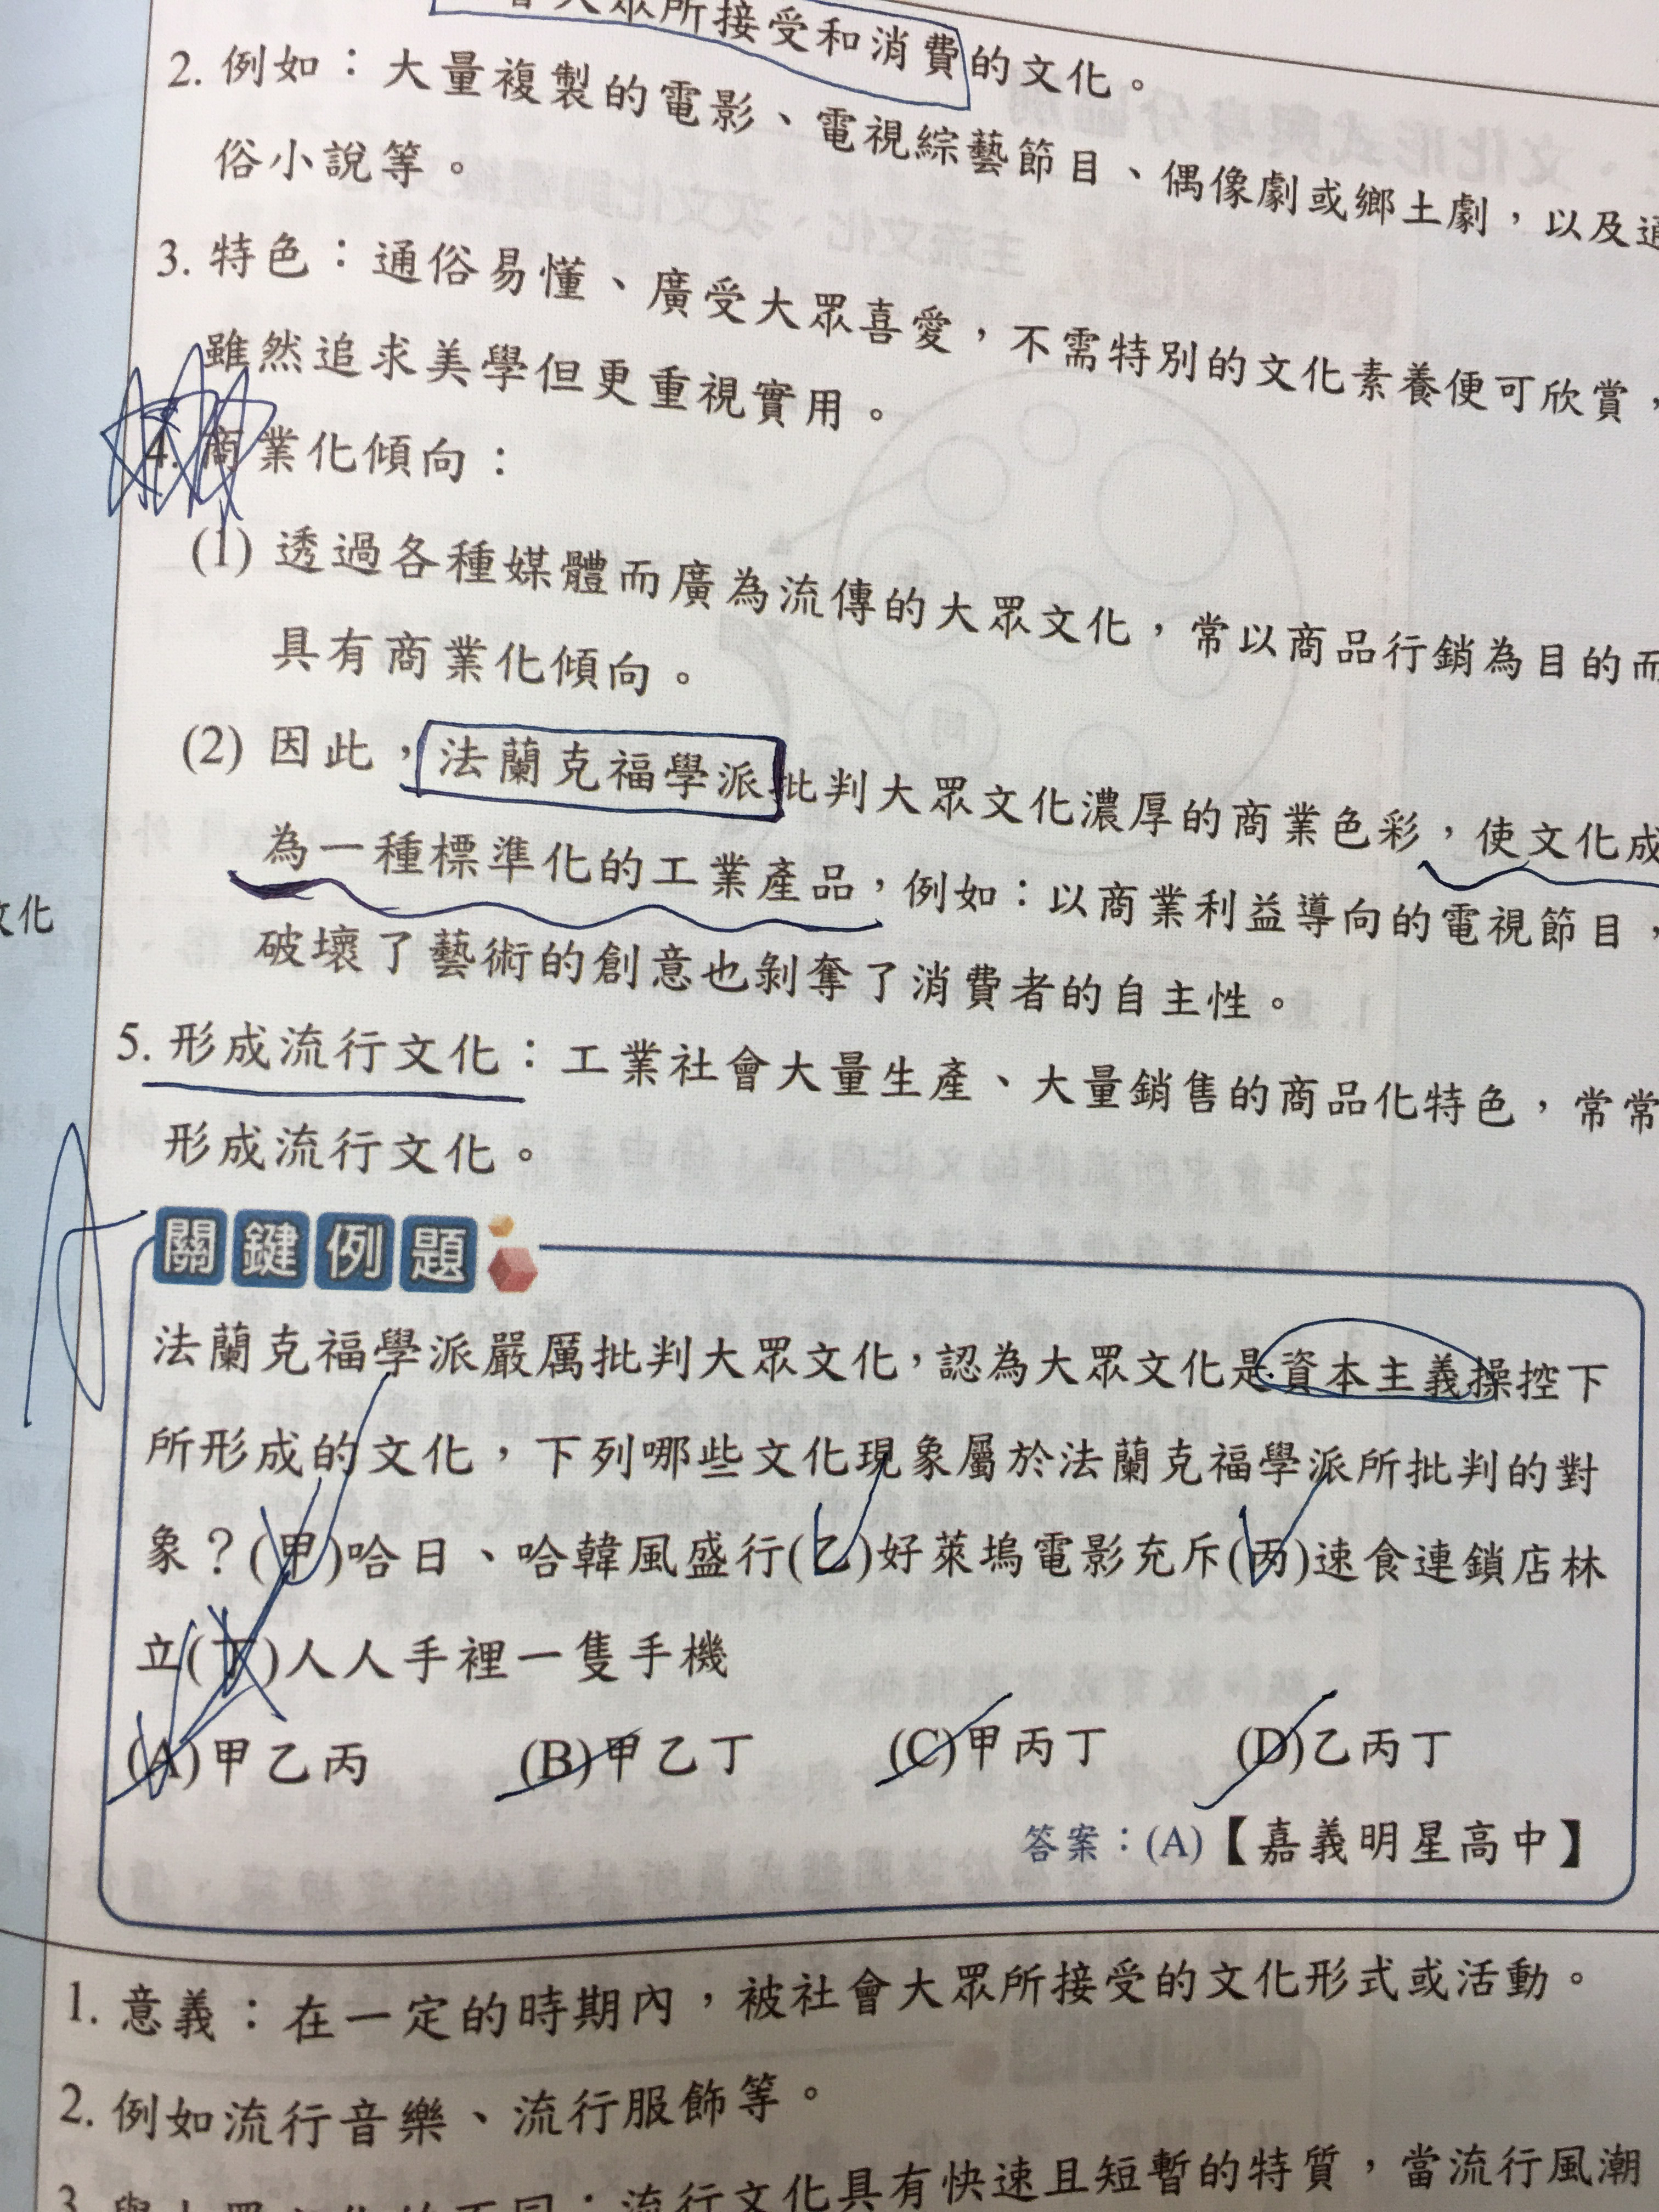 會大眾所接受和消費的文化。
2. 例如：大量複製的電影、電視綜藝節目、偶像劇或鄉土劇，以及通
俗小說等。
3. 特色：通俗易懂、廣受大眾喜愛，不需特別的文化素養便可欣賞，
雖然追求美學但更重視實用。
4. 商業化傾向：
(1) 透過各種媒體而廣為流傳的大眾文化，常以商品行銷為目的而
具有商業化傾向。
(2) 因此，法蘭克福學派批判大眾文化濃厚的商業色彩，使文化成
為一種標準化的工業產品，例如：以商業利益導向的電視節目，
文化
破壞了藝術的創意也剝奪了消費者的自主性。
5. 形成流行文化：工業社會大量生產、大量銷售的商品化特色，常常
形成流行文化。
關鍵例題
法蘭克福學派嚴厲批判大眾文化，認為大眾文化是資本主義操控下
所形成的文化，下列哪些文化現象屬於法蘭克福學派所批判的對
象？(甲)哈日、哈韓風盛行(乙)好萊塢電影充斥(丙)速食連鎖店林
立(丁)人人手裡一隻手機
(A)甲乙丙 (B)甲乙丁 (C)甲丙丁 (D)乙丙丁
答案：(A)【嘉義明星高中】
1. 意義：在一定的時期內，被社會大眾所接受的文化形式或活動。
2. 例如流行音樂、流行服飾等。
3. 與大眾文化的不同：流行文化具有快速且短暫的特質，當流行風潮